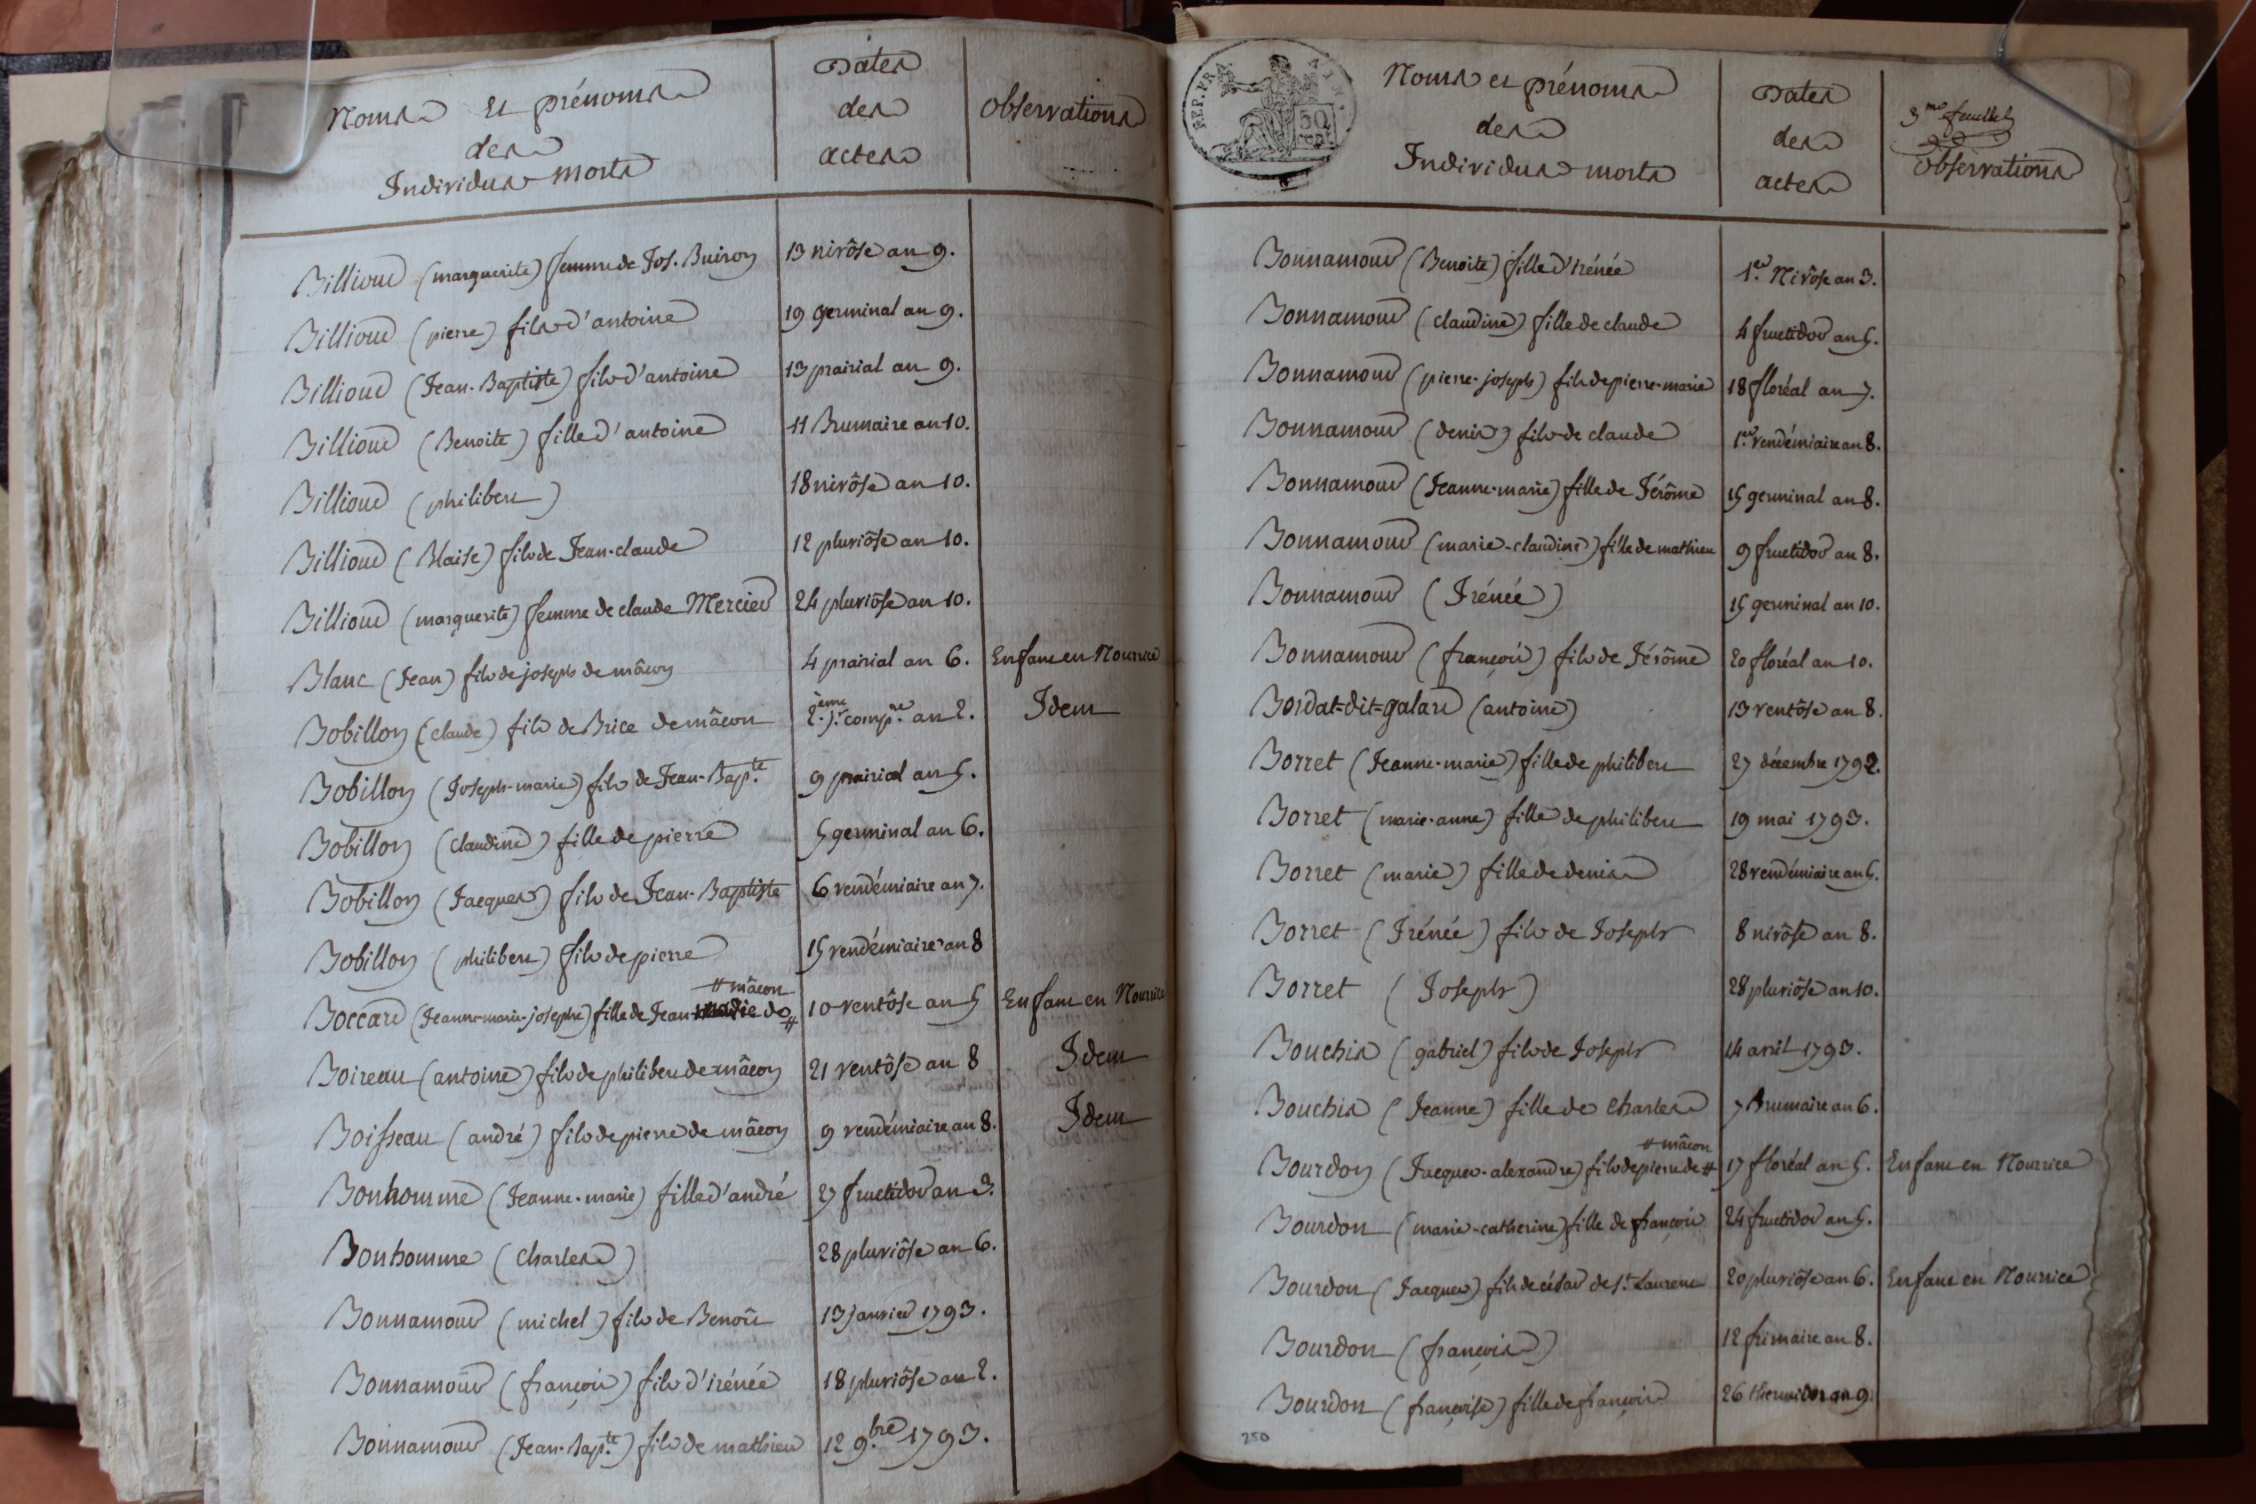 Noms et prénoms
des
Individus morts
Dates
des
actes
Observations
Billioud (marguerite) femme de Jos. Buiron 13 nivôse an 9.
Billioud (pierre) fils d'antoine 19 germinal an 9.
Billioud (Jean-Baptiste) fils d'antoine 13 prairial an 9.
Billioud (Benoite) fille d'antoine 11 Brumaire an 10.
Billioud (philibert) 18 nivôse an 10.
Billioud (Blaise) fils de Jean-claude 12 pluviôse an 10.
Billioud (marguerite) femme de claude Mercier 24 pluviôse an 10.
Blanc (Jean) fils de joseph de mâcon 4 prairial an 6. Enfant en Nourrice
Bobillon (claude) fils de Brice de mâcon 2.ème j.r comp.re an 2. Idem
Bobillon (Joseph-marie) fils de Jean-Bap.te 9 prairial an 5.
Bobillon (claudine) fille de pierre 5 germinal an 6.
Bobillon (Jacques) fils de Jean-Baptiste 6 vendémiaire an 7.
Bobillon (philibert) fils de pierre 15 vendémiaire an 8
# mâcon
Boccard (Jeanne-marie-josephe) fille de Jean-marie de # 10 ventôse an 5 Enfant en Nourrice
Boireau (antoine) fils de philibert de mâcon 21 ventôse an 8 Idem
Boisseau (andré) fils de pierre de mâcon 9 vendémiaire an 8. Idem
Bonhomme (Jeanne-marie) fille d'andré 27 fructidor an 3.
Bonhomme (charles) 28 pluviôse an 6.
Bonnamour (michel) fils de Benoît 13 janvier 1793.
Bonnamour (françois) fils d'irénée 18 pluviôse an 2.
Bonnamour (Jean-Bap.te) fils de mathieu 12 9.bre 1793.
REP. FRA.
50
Noms et prénoms
des
Individus morts
Dates
des
actes
3.me feuillet
Observations
Bonnamour (Benoite) fille d'irénée 1.er Nivôse an 3.
Bonnamour (claudine) fille de claude 4 fructidor an 5.
Bonnamour (pierre-joseph) fils de pierre-marie 18 floréal an 7.
Bonnamour (denis) fils de claude 1.er vendémiaire an 8.
Bonnamour (Jeanne-marie) fille de Jérôme 15 germinal an 8.
Bonnamour (marie-claudine) fille de mathieu 9 fructidor an 8.
Bonnamour (Irénée) 15 germinal an 10.
Bonnamour (françois) fils de Jérôme 20 floréal an 10.
Bordat=dit=galard (antoine) 13 ventôse an 8.
Borret (Jeanne-marie) fille de philibert 27 décembre 1792.
Borret (marie-anne) fille de philibert 19 mai 1793.
Borret (marie) fille de denis 28 vendémiaire an 6.
Borret (Irénée) fils de Joseph 8 nivôse an 8.
Borret (Joseph) 28 pluviôse an 10.
Bouchis (gabriel) fils de Joseph 14 avril 1793.
Bouchis (Jeanne) fille de Charles 7 Brumaire an 6.
# mâcon
Bourdon (Jacques-alexandre) fils de pierre de # 17 floréal an 5. Enfant en Nourrice
Bourdon (marie-catherine) fille de françois 24 fructidor an 5.
Bourdon (Jacques) fils de césar de S.t Laurent 20 pluviôse an 6. Enfant en Nourrice
Bourdon (françois) 12 frimaire an 8.
Bourdon (françoise) fille de françois 26 thermidor an 9.
250